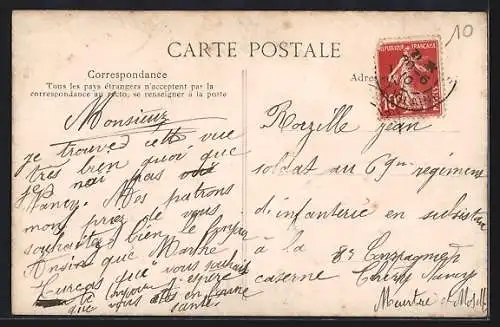 10
CARTE POSTALE
Correspondance
Tous les pays étrangers n'acceptent pas la
correspondance au recto, se renseigner à la poste
Adres
REPUBLIQUE FRANÇAISE
10
POSTES
Monsieur
je trouve cette vue
très bien quoi que
je pas
Nancy. Mes patrons
mont priez de vous
souhaitez bien le bonjour
Ainsi que Marthe
que vous souhait
le bonjour j'espère
que vous êtes en bonne
santé.
jean
soldat au 69me regiment
d'infanterie en subsistan
à la 8e Compagnie
caserne Nancy
Meurthe et Moselle